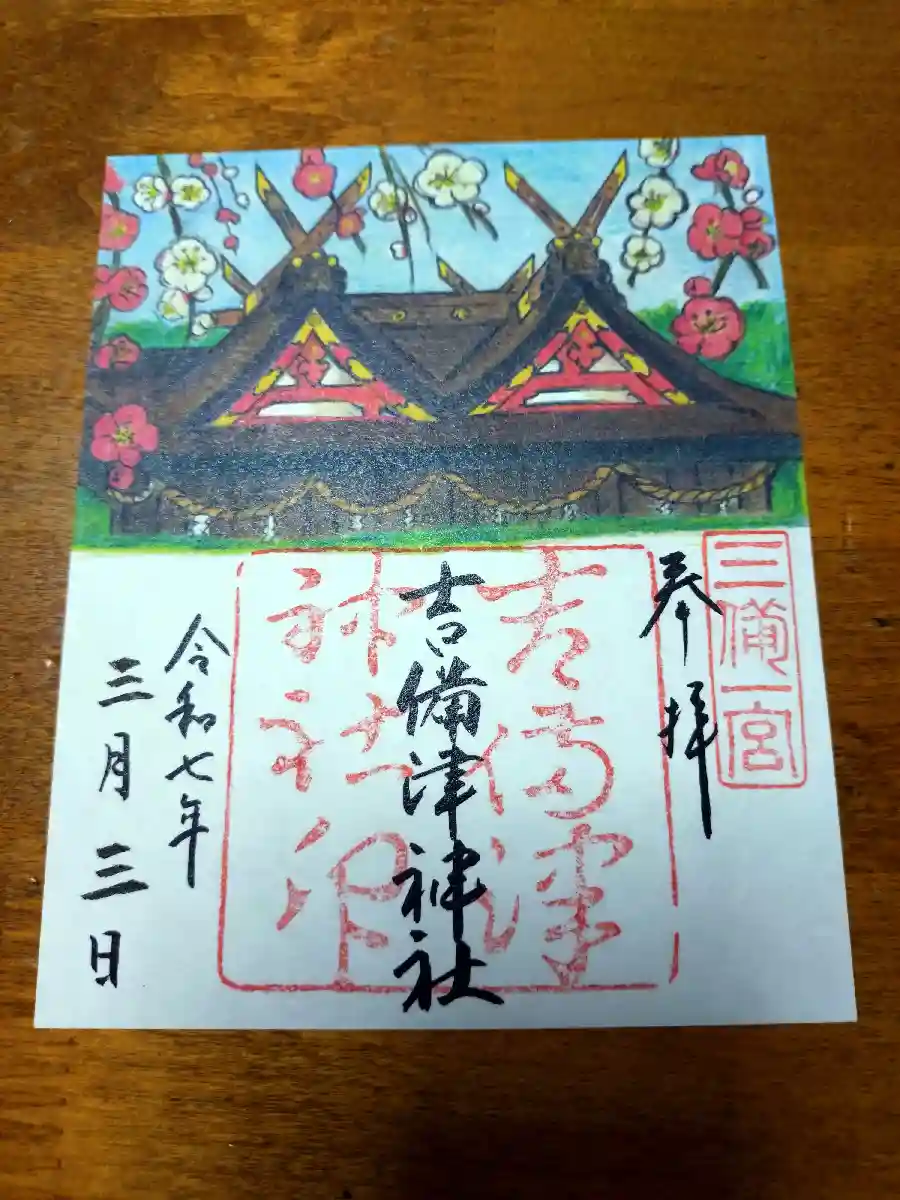 三備一宮
奉拝
吉備津
神社印
吉備津神社
令和七年
三月三日